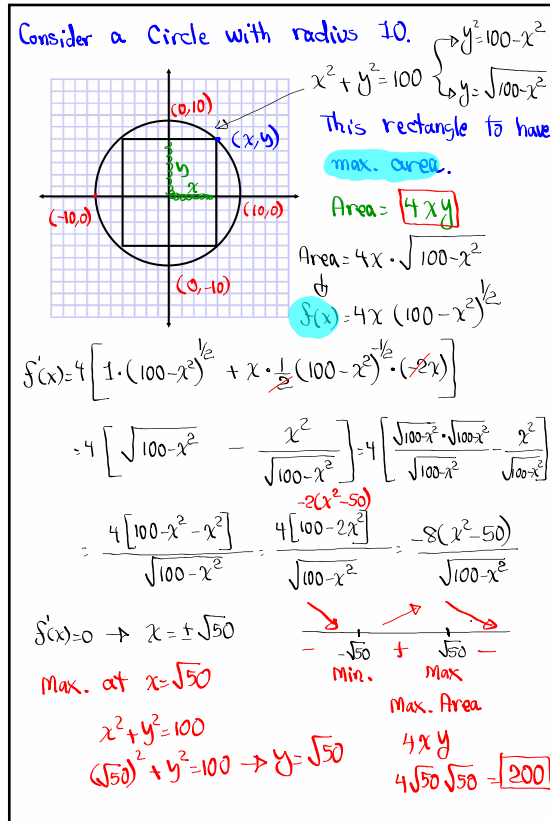 Consider a Circle with radius 10.
y²=100-x²
x²+y²=100
y=√(100-x²)
(0,10)
(x,y)
This rectangle to have
max. area.
y
x
(-10,0)
(10,0)
Area= 4xy
Area=4x·√(100-x²)
(0,-10)
f(x)=4x(100-x²)^(1/2)
f'(x)=4[1·(100-x²)^(1/2) + x·1/2(100-x²)^(-1/2)·(-2x)]
=4[√(100-x²) - x²/√(100-x²)]=4[√(100-x²)·√(100-x²)/√(100-x²) - x²/√(100-x²)]
-2(x²-50)
= 4[100-x²-x²]/√(100-x²) = 4[100-2x²]/√(100-x²) = -8(x²-50)/√(100-x²)
f'(x)=0 → x=±√50
- -√50 + √50 -
Min. Max
Max. at x=√50
Max. Area
x²+y²=100
4xy
(√50)²+y²=100 → y=√50
4√50√50 = 200